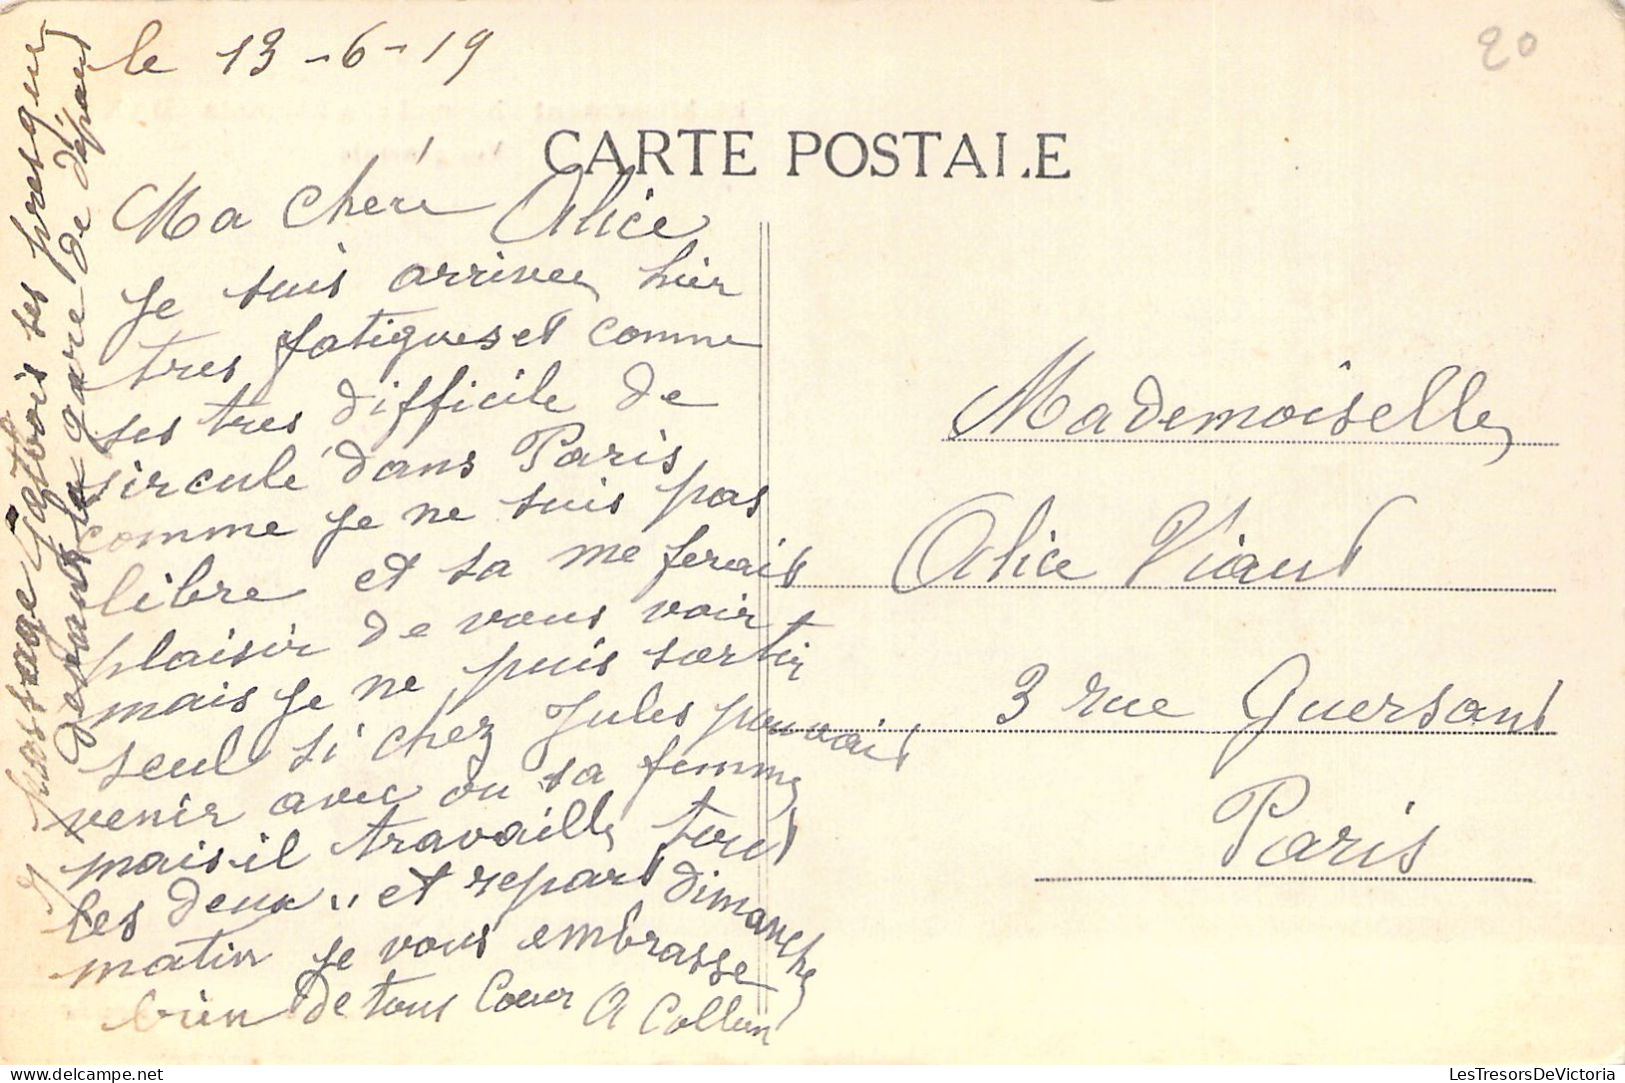 le 13-6-19
20
CARTE POSTALE
Ma cheré Alice
Je suis arrivée hier
tres fatigues et comme
ses tres difficile de
sirculé dans Paris
comme je ne suis pas
libre et sa me ferait
plaisir de vous voir
mais je ne puis sortir
seul si chez Jules pouvait
venir avec ou sa femme
mais il travaille tout
les deux et repart dimanche
matin je vous embrasse
bien de tout Coeur A Collun
passage Gatbois ses presque
devant la gare de dépard
Mademoiselle
Alice Viaut
3 rue Guersant
Paris
LesTresorsDeVictoria